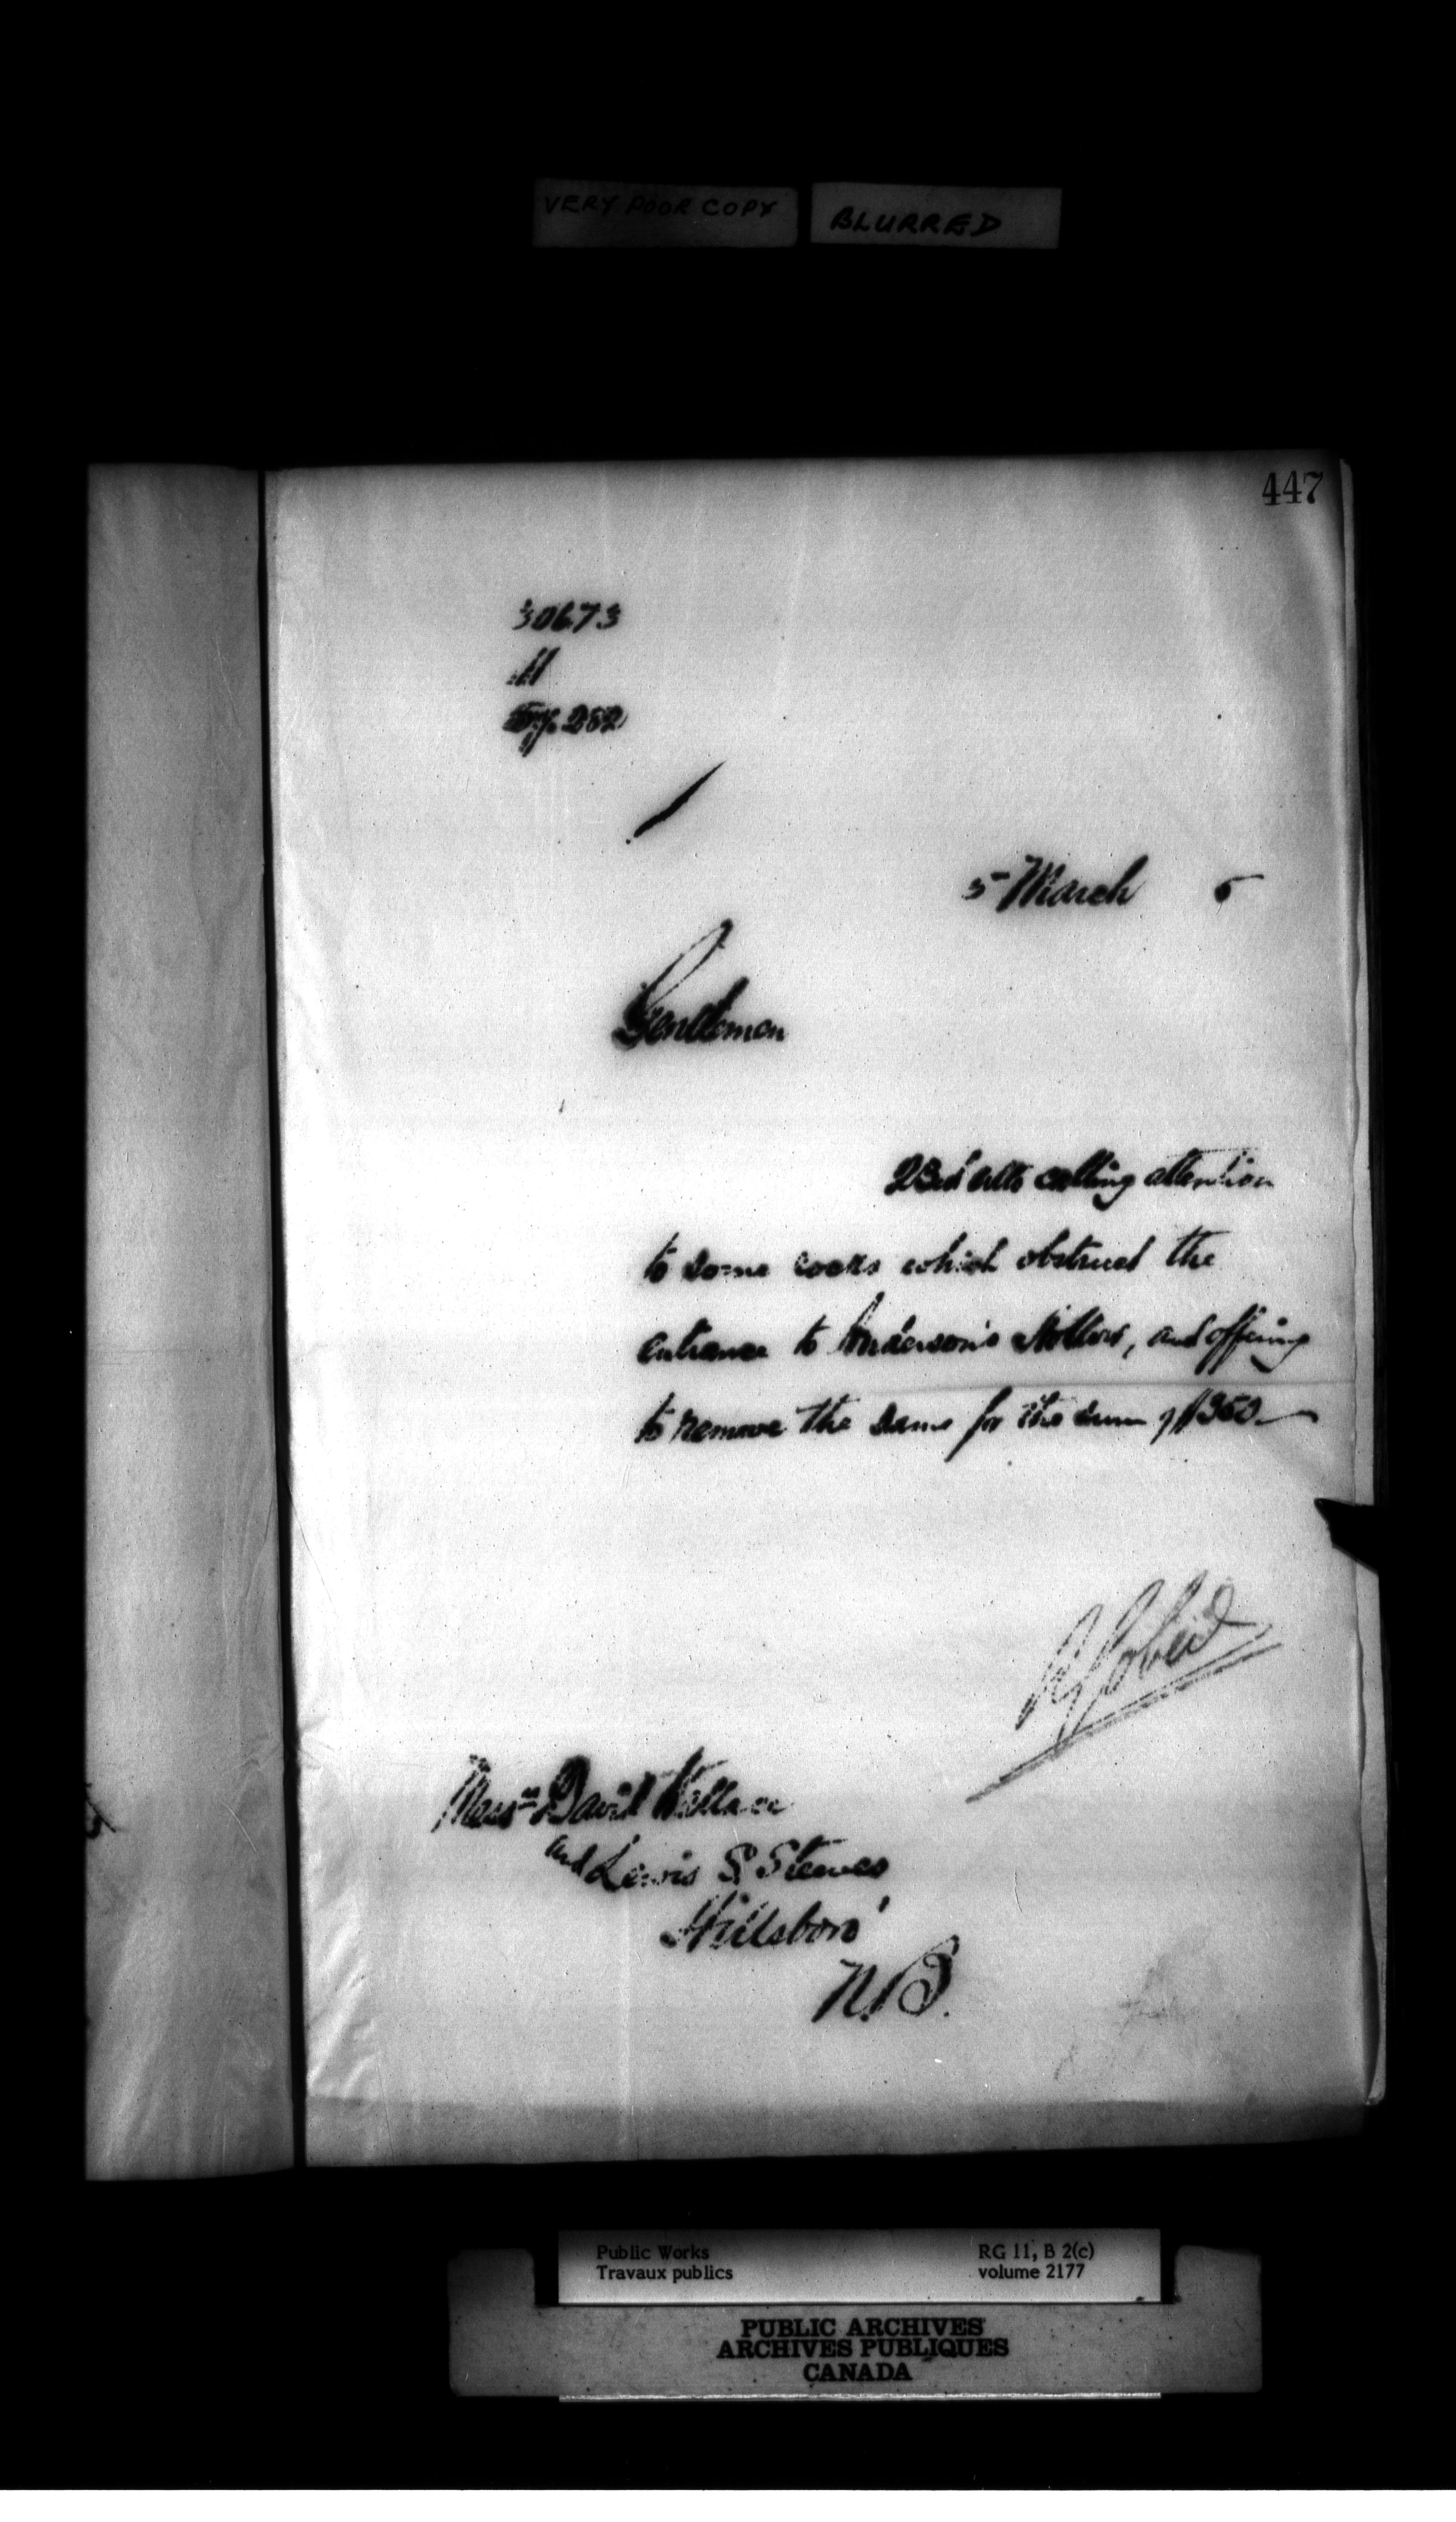 VERY POOR COPY BLURRED
447
30673
11
282
5 March 5
Gentlemen
23rd ulto calling attention
to some rocks which obstruct the
entrance to Anderson's Hollow, and offering
to remove the same for the sum of $350
A Gobeil
Messrs David Wallace
and Lewis S. Steeves
Hillsboro'
N.B.
Public Works RG 11, B 2(c)
Travaux publics volume 2177
PUBLIC ARCHIVES
ARCHIVES PUBLIQUES
CANADA